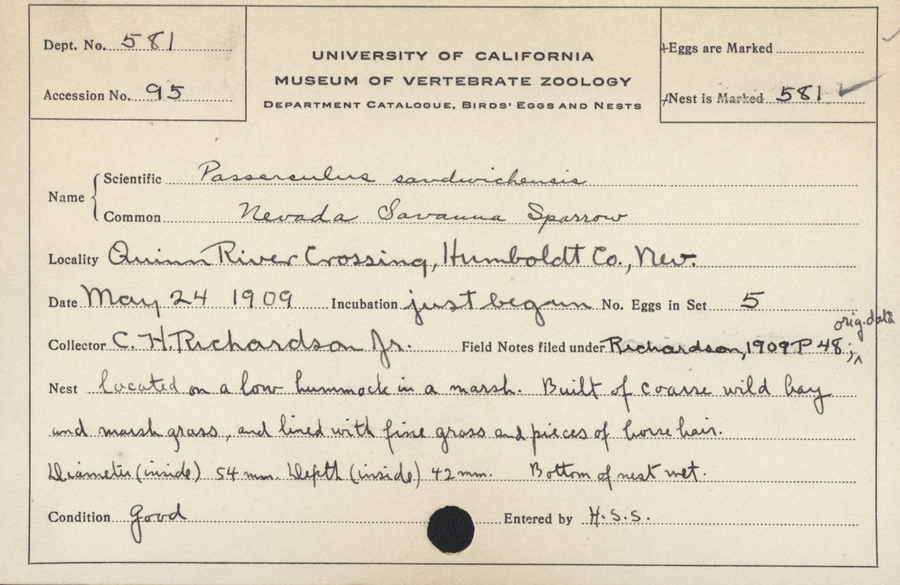 Dept. No. 581
Accession No. 95
UNIVERSITY OF CALIFORNIA
MUSEUM OF VERTEBRATE ZOOLOGY
DEPARTMENT CATALOGUE, BIRDS' EGGS AND NESTS
Eggs are Marked
Nest is Marked 581
Name
Scientific Passerculus sandwichensis
Common Nevada Savanna Sparrow
Locality Quinn River Crossing, Humboldt Co., Nev.
Date May 24 1909 Incubation just begun No. Eggs in Set 5
orig. data
Collector C. H. Richardson Jr. Field Notes filed under Richardson, 1909 P 48;
Nest located on a low hummock in a marsh. Built of coarse wild hay
and marsh grass, and lined with fine grass and pieces of horse hair.
Diameter (inside) 54 mm. Depth (inside) 42 mm. Bottom of nest wet.
Condition good Entered by H.S.S.